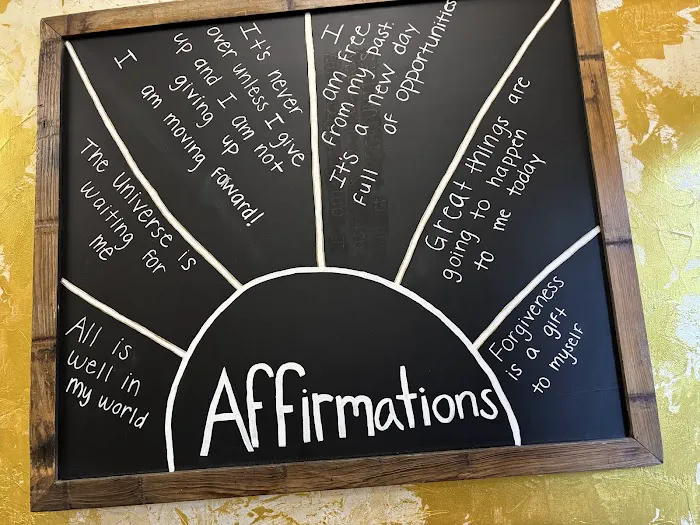 All is
well in
my world
The universe is
waiting for
me
It's never
over unless I give
up and I am not
giving up
I am moving foward!
I
am free
from my past.
It's a new day
full of opportunities
Great things are
going to happen
to me today
Forgiveness
is a gift
to myself
Affirmations